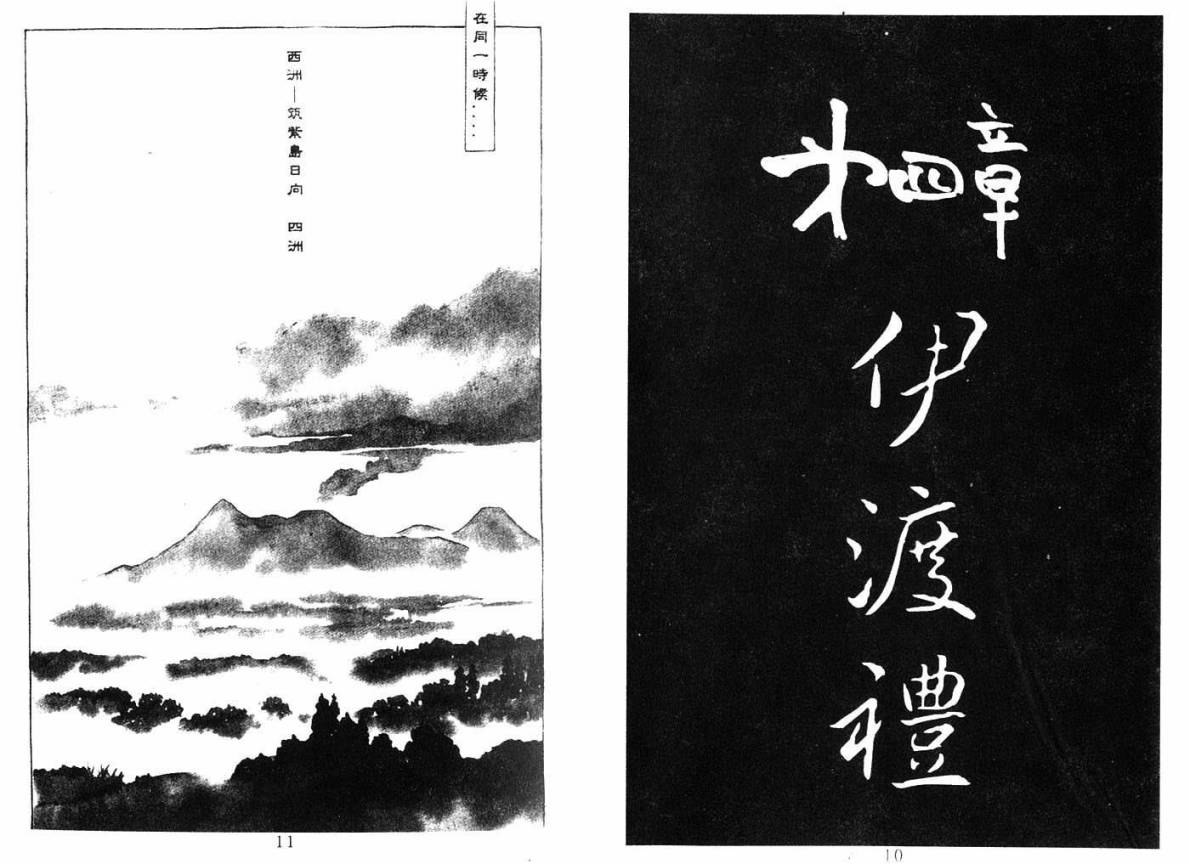 第四章
伊渡禮
10
在同一時候‥‥
西洲—筑紫島日向 四洲
11